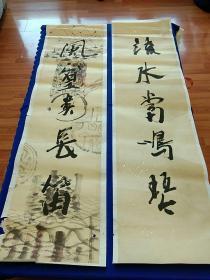 流水當鳴琴
風篁類長笛